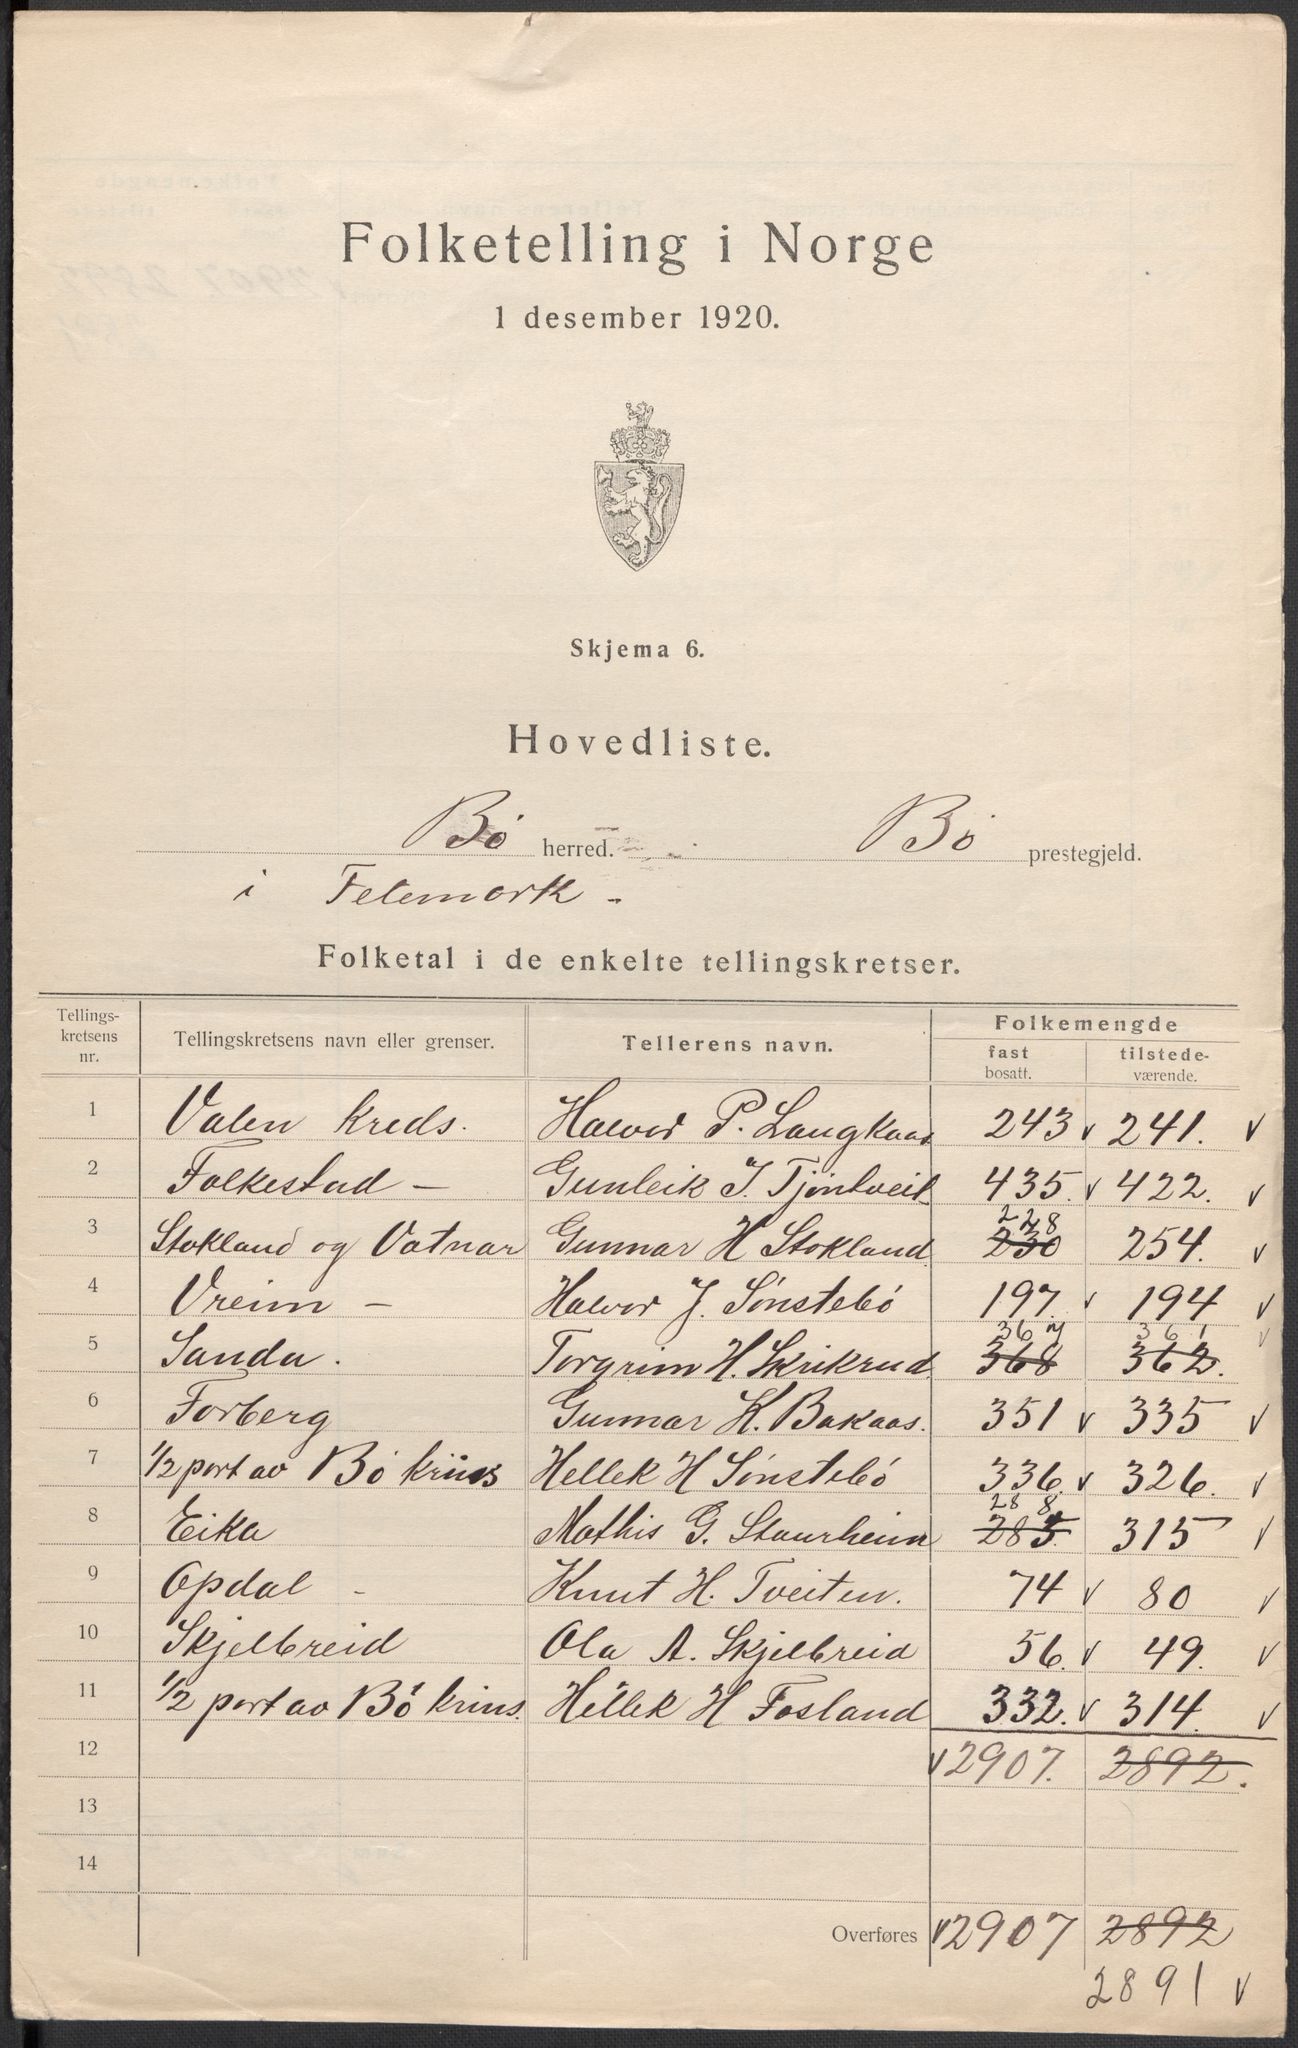 Folketelling i Norge
1 desember 1920.
Skjema 6.
Hovedliste.
Bø herred. Bø prestegjeld.
i Telemark -
Folketal i de enkelte tellingskretser.
Tellings-kretsens nr. Tellingskretsens navn eller grenser. Tellerens navn. Folkemengde
fast bosatt. tilstede-værende.
1 Valen kreds. Halvor P. Langkaas 243 v 241. v
2 Folkestad - Gunleik J. Tjöntveit 435. v 422. v
228
3 Stokland og Vatnar Gunnar H Stokland 230 254. v
4 Vreim - Halvor J. Sönstebö 197. v 194 v
367 361 v
5 Sanda. Torgrim H. Skrikrud 368 362.
6 Forberg Gunnar K. Bakaas. 351 v 335 v
7 1/2 part av Bö krins Hellek H Sönstebö 336. v 326. v
288
8 Eika Mathis G. Staurheim 285. 315 v
9 Opdal - Knut H. Tveiten. 74 v 80 v
10 Skjelbreid Ola A. Skjelbreid 56. v 49. v
11 1/2 part av Bö krins. Hellek H Fosland 332. v 314. v
12 v 2907. 2892.
13
14
Overføres v 2907 2892
2891 v